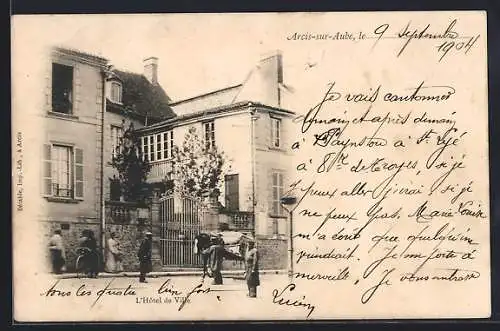 Arcis-sur-Aube, le 9 septembre
1904
Je vais cantonner
demain et après demain
à à St
à 8 K. de Troyes, si je
peux aller j'irai si je
ne peux pas. Marie Louise
m'a écrit que quelqu'un
viendrait. Je me porte à
merveille. Je vous embrasse
tous les quatre bien fort
Lucien
L'Hôtel de Ville
Imp.-Lib., à Arcis